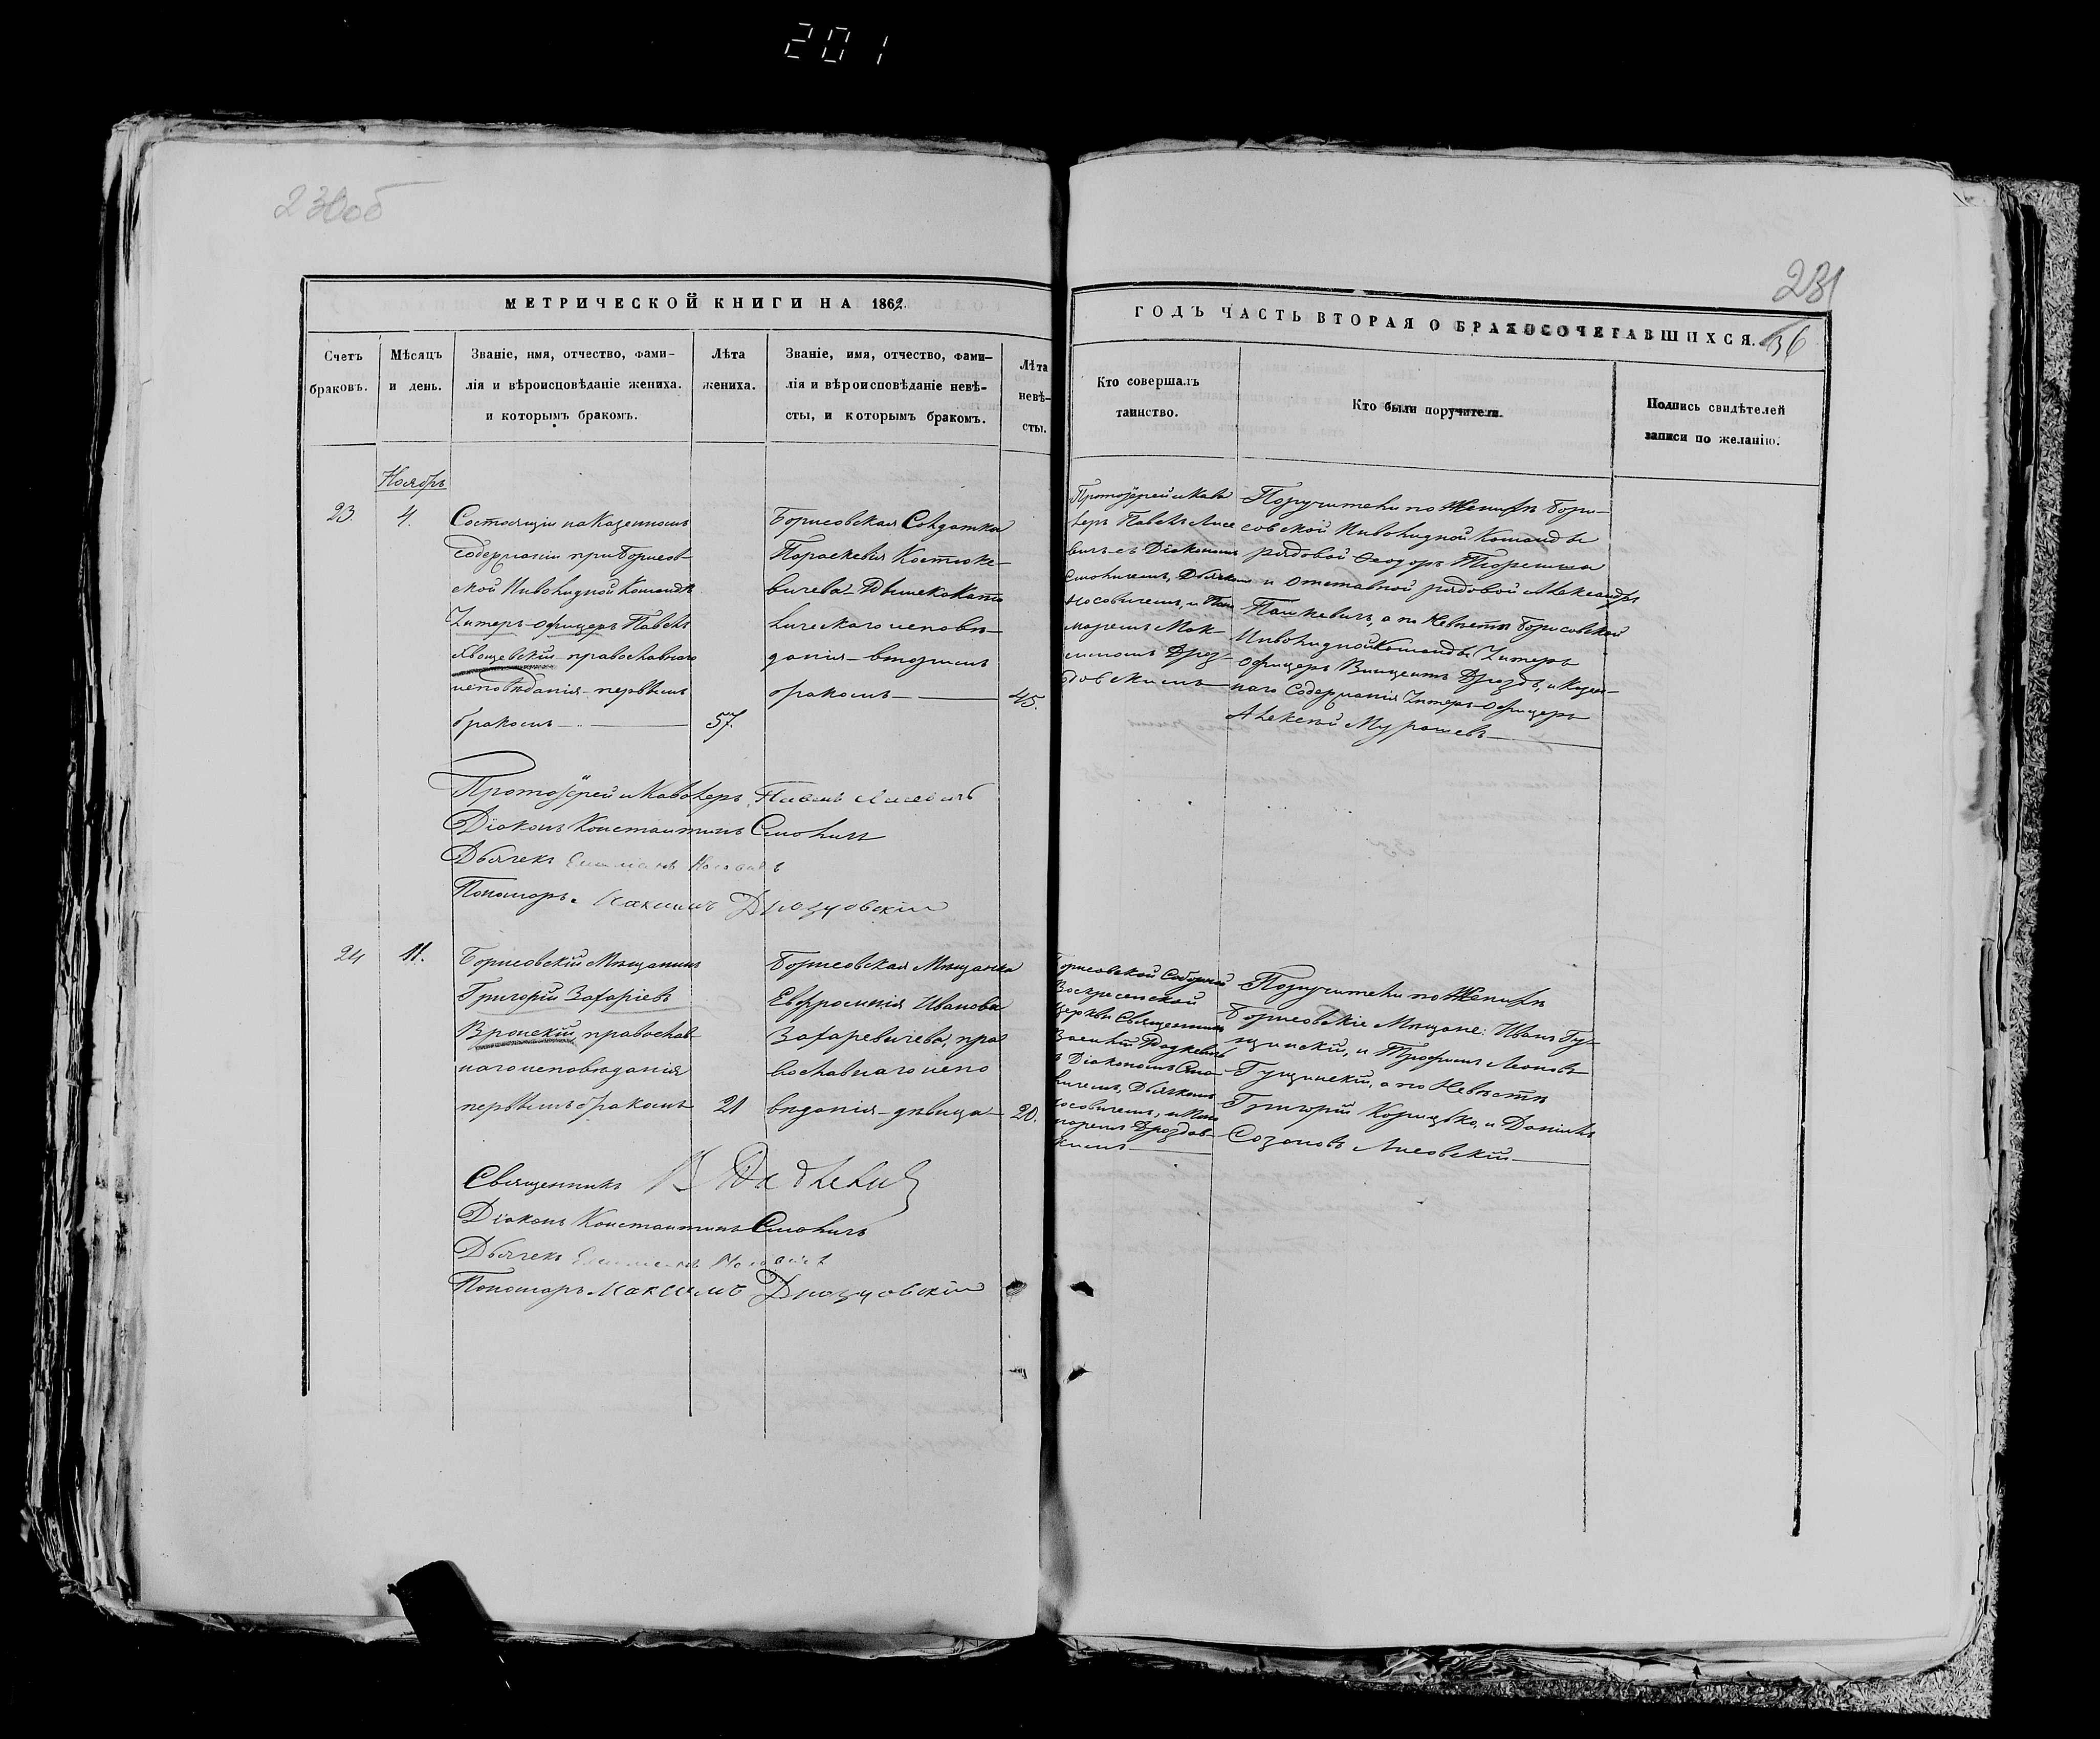 201
230об
231
36
МЕТРИЧЕСКОЙ КНИГИ НА 1862.
Счетъ браковъ.
Мѣсяцъ и день.
Званіе, имя, отчество, фами-
лія и вѣроисповѣданіе жениха.
и которымъ бракомъ.
Лѣта жениха.
Званіе, имя, отчество, фами-
лія и вѣроисповѣданіе невѣ-
сты, и которымъ бракомъ.
Лѣта невѣ-
сты.
ГОДЪ ЧАСТЬ ВТОРАЯ О БРАКОСОЧЕТАВШИХСЯ.
Кто совершалъ
таинство.
Кто были поручители.
Подпись свидѣтелей
записи по желанію.
Ноябрь
23.
4.
Состоящій на Казенномъ
содержаніи при Борисов-
ской Инвалидной Командѣ
Унтеръ-офицеръ Павелъ
православнаго
исповѣданія первымъ
бракомъ
57.
Борисовская Солдатка
Параскевія Костюке-
вичева Римско Като
лическаго исповѣ-
данія вторымъ
бракомъ
45.
Протоіерей и Кава
леръ Павелъ Лисе
вичъ съ Діакономъ
Смоличемъ, Дьячкомъ
Носовичемъ, и Поно
маремъ Мак-
симомъ Дроз-
довскимъ
Поручители по Женихѣ Бори-
совской Инвалидной Команды
рядовой Ѳеодоръ
и отставной рядовой Александръ
Пашкевичъ, а по Невѣстѣ Борисовской
Инвалидной Команды Унтеръ
офицеръ Винцентъ Дроздъ, и Казен-
наго Содержанія Унтеръ-офицеръ
Алексѣй Мурашевъ
Протоіерей и Кавалеръ Павелъ Лисевичъ
Діаконъ Константинъ Смоличъ
Дьячекъ Емиліанъ Носовичъ
Пономарь Максимъ Дроздовскій
24
11.
Борисовскій Мѣщанинъ
Григорій Захаріевъ
Вронскій, православ-
наго исповѣданія
первымъ бракомъ
21
Борисовская Мѣщанка
Евфросинія Иванова
Захаревичева, пра
вославнаго испо
вѣданія дѣвица
20.
Борисовской Соборной
Воскресенской
Церкви Священникъ
Василій
съ Діакономъ Смо
личемъ, Дьячкомъ
Носовичемъ, и Поно
маремъ Дроздов-
скимъ
Поручители по Женихѣ
Борисовскіе Мѣщане: Иванъ Гу-
щинскій, и Трофимъ Леоновъ
Гущинскій, а по Невѣстѣ
Григорій Корицько, и Даніилъ
Созоновъ Лисовскій
Священникъ В
Діаконъ Константинъ Смоличъ
Дьячекъ Емиліанъ Носовичъ
Пономарь Максимъ Дроздовскій